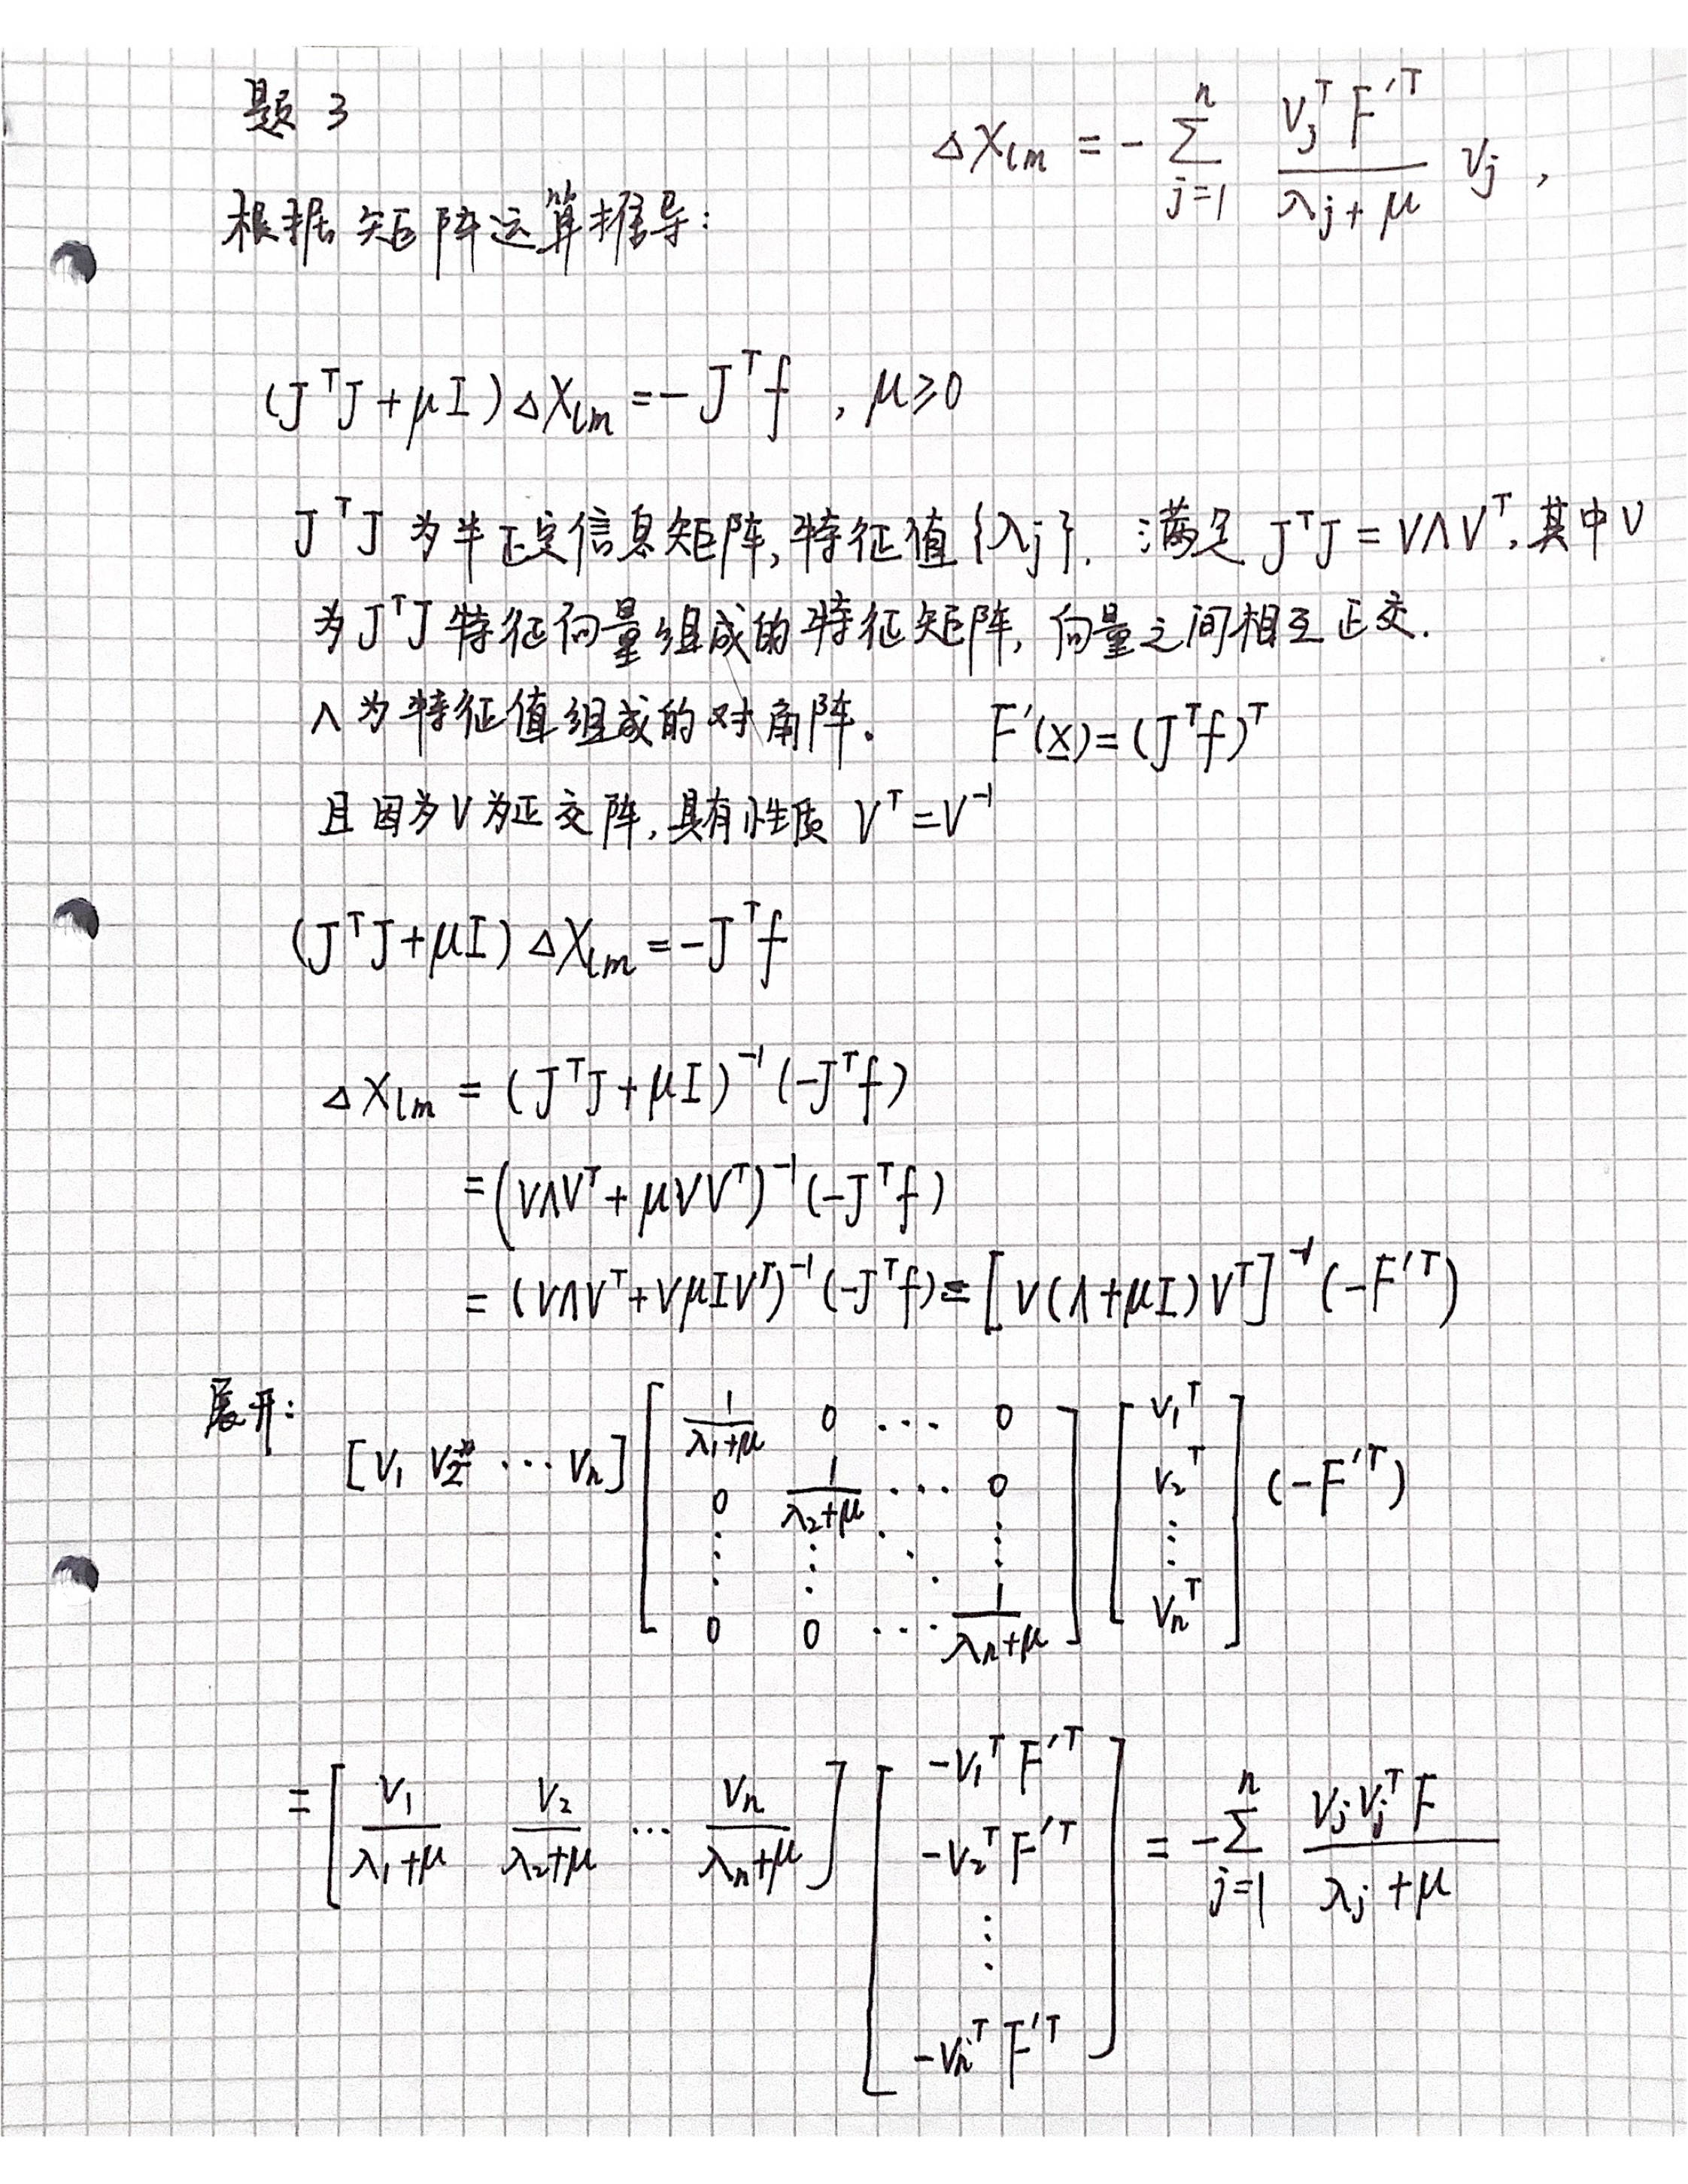 题 3
Δx_{lm} = - \sum_{j=1}^{n} \frac{V_j^T F'^T}{λ_j + μ} v_j ,
根据矩阵运算推导:
(J^T J + μI) Δx_{lm} = - J^T f , μ ≥ 0
J^T J 为半正定信息矩阵, 特征值 {λj}. 满足 J^T J = VΛV^T, 其中 V
为 J^T J 特征向量组成的特征矩阵, 向量之间相互正交.
Λ 为特征值组成的对角阵。 F'(x) = (J^T f)^T
且因为 V 为正交阵, 具有性质 V^T = V^{-1}
(J^T J + μI) Δx_{lm} = - J^T f
Δx_{lm} = (J^T J + μI)^{-1} (-J^T f)
= (VΛV^T + μVV^T)^{-1} (-J^T f)
= (VΛV^T + VμIV^T)^{-1} (-J^T f) = [V(Λ+μI)V^T]^{-1} (-F'^T)
展开: [V_1 V_2 ⋯ V_n] \begin{bmatrix} \frac{1}{λ_1+μ} & 0 & ⋯ & 0 \\ 0 & \frac{1}{λ_2+μ} & ⋯ & 0 \\ ⋮ & ⋮ & ⋱ & ⋮ \\ 0 & 0 & ⋯ & \frac{1}{λ_n+μ} \end{bmatrix} \begin{bmatrix} V_1^T \\ V_2^T \\ ⋮ \\ V_n^T \end{bmatrix} (-F'^T)
= \begin{bmatrix} \frac{V_1}{λ_1+μ} & \frac{V_2}{λ_2+μ} & ⋯ & \frac{V_n}{λ_n+μ} \end{bmatrix} \begin{bmatrix} -V_1^T F'^T \\ -V_2^T F'^T \\ ⋮ \\ -V_n^T F'^T \end{bmatrix} = - \sum_{j=1}^{n} \frac{V_j V_j^T F}{λ_j + μ}